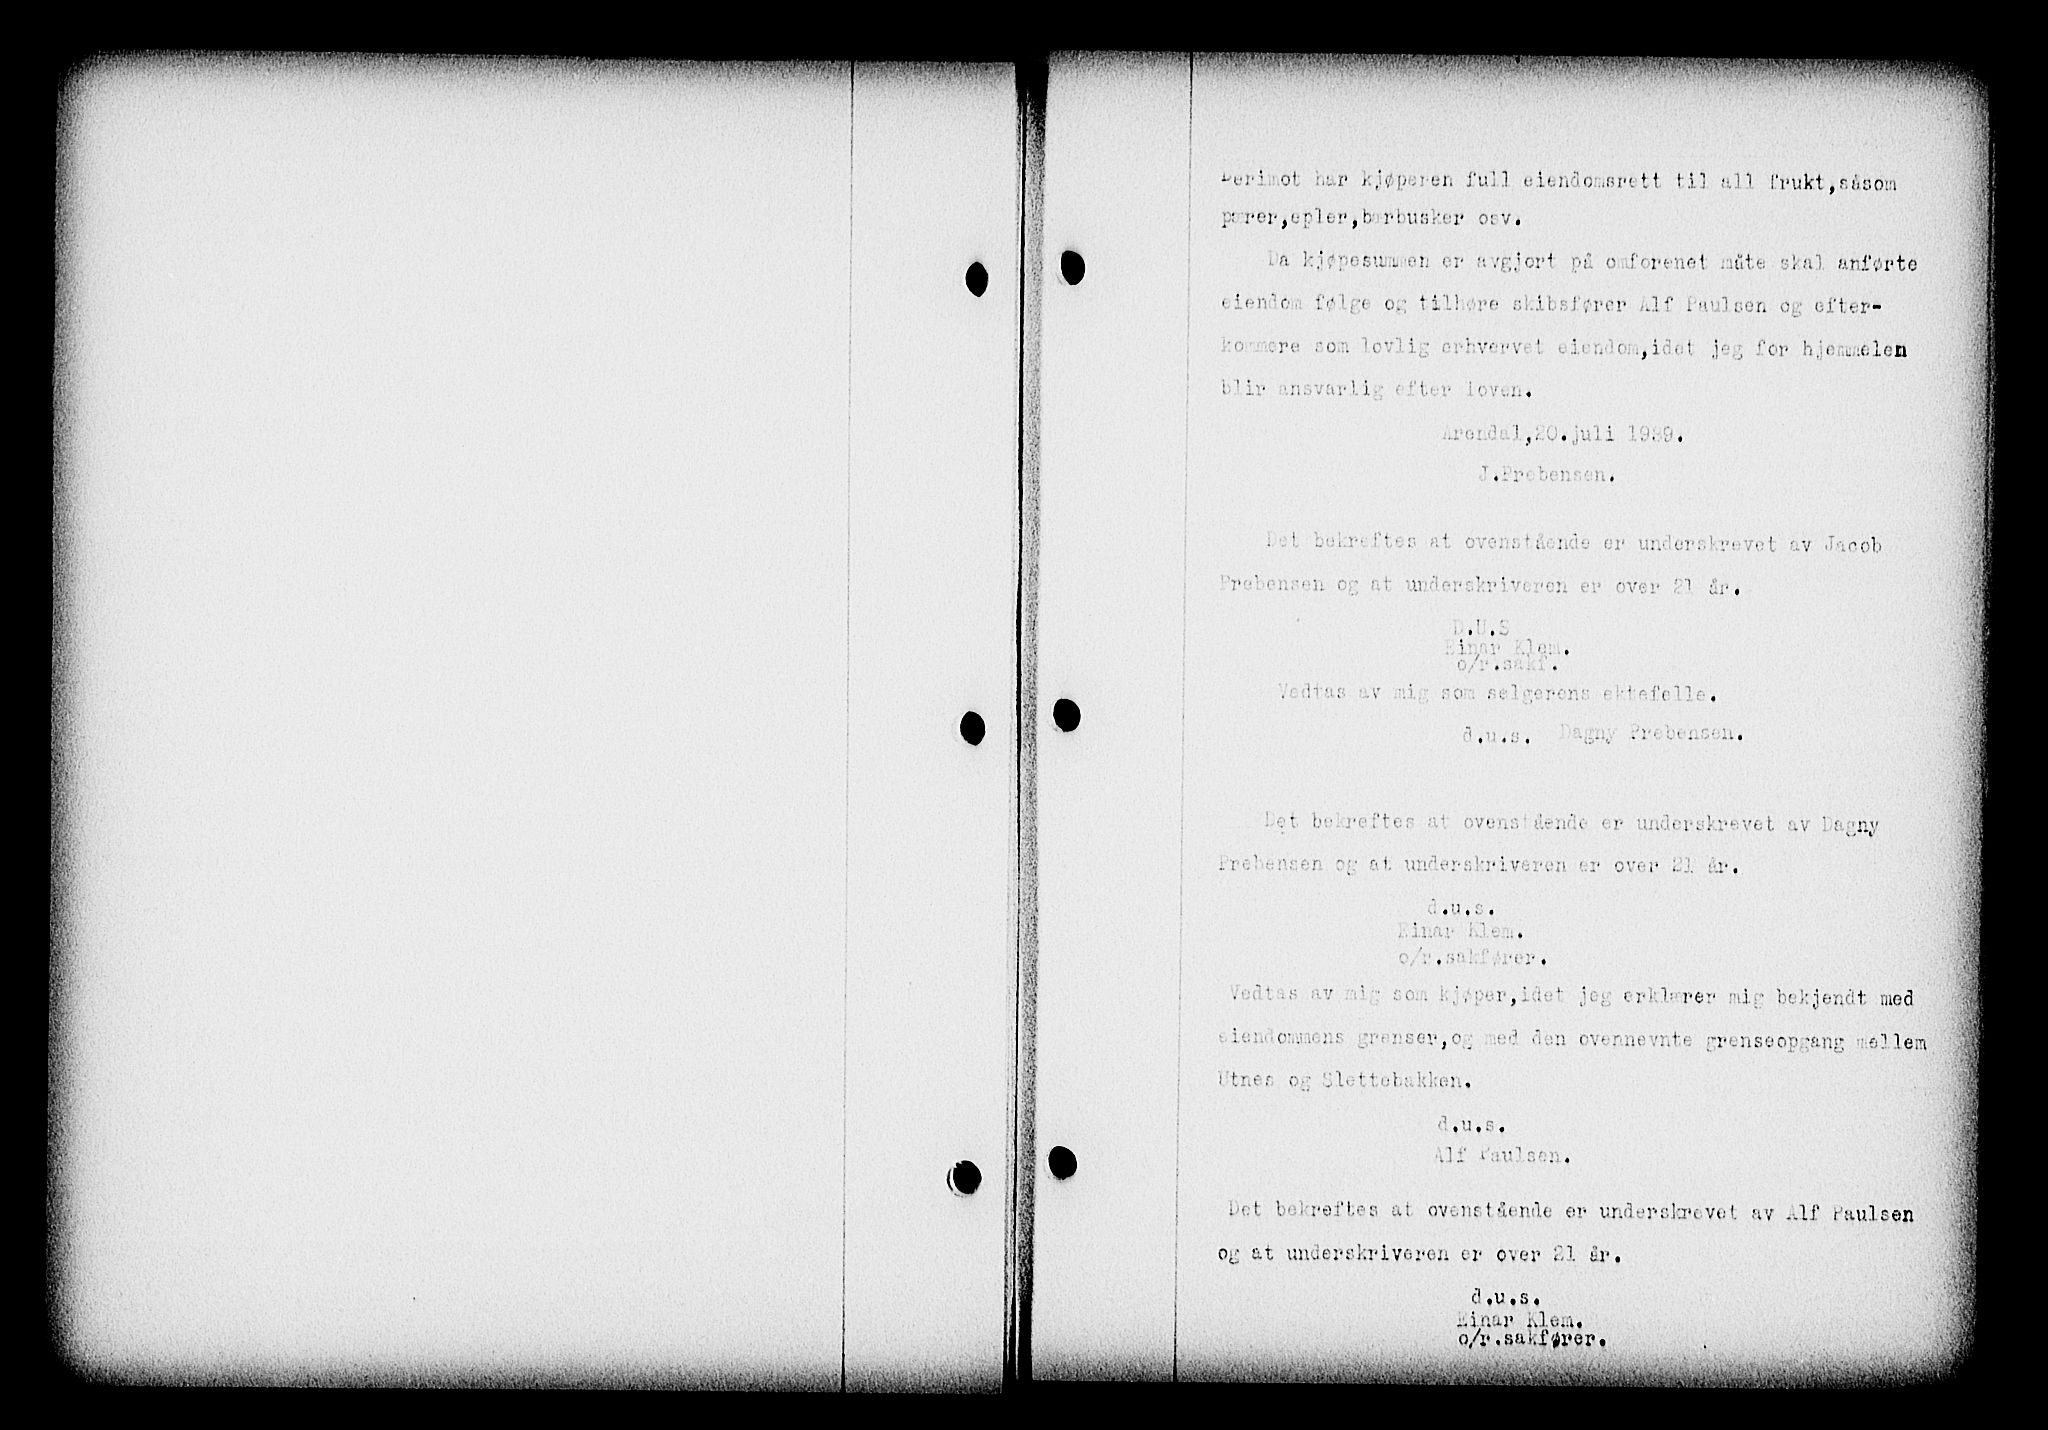 Derimot har kjøperen full eiendomsrett til all frukt,såsom
pærer,epler,bærbusker osv.
Da kjøpesummen er avgjort på omforenet måte skal anførte
eiendom følge og tilhøre skibsfører Alf Paulsen og efter-
kommere som lovlig erhvervet eiendom,idet jeg for hjemmelen
blir ansvarlig efter loven.
Arendal,20.juli 1939.
J.Prebensen.
Det bekreftes at ovenstående er underskrevet av Jacob
Prebensen og at underskriveren er over 21 år.
D.U.S
Einar Klem.
o/r.sakf.
Vedtas av mig som selgerens ektefelle.
d.u.s. Dagny Prebensen.
Det bekreftes at ovenstående er underskrevet av Dagny
Prebensen og at underskriveren er over 21 år.
d.u.s.
Einar Klem.
o/r.sakfører.
Vedtas av mig som kjøper,idet jeg erklærer mig bekjendt med
eiendommens grenser,og med den ovennevnte grenseopgang mellem
Utnes og Slettebakken.
d.u.s.
Alf Paulsen.
Det bekreftes at ovenstående er underskrevet av Alf Paulsen
og at underskriveren er over 21 år.
d.u.s.
Einar Klem.
o/r.sakfører.